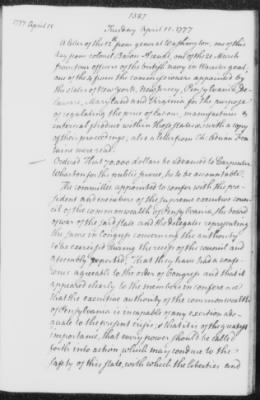 1387
1777 April 15
Tuesday April 15. 1777
A letter of the 12th from general Washington, one of this
day from colonel, Baron Arendt, one of the 20 March
from two officers of the British navy in Worcester gaol,
one of the from the commissioners appointed by
the states of New York, New Jersey, Pensylvania, De-
laware, Maryland and Virginia for the purpose
of regulating the price of labour, manufactures &
internal produce within those states, with a copy
of their proceedings, also a letter from
were read.
Ordered That 70,000 dollars be advanced to Carpenter
Wharton for the public service, he to be accountable.
The Committee appointed to confer with the pre-
sident and members of the supreme executive coun-
cil of the commonwealth of Pensylvania, the board
of war of the said state and the delegates representing
the same in Congress concerning the authority
to be exercised during the recess of the council and
assembly reported, That they have had a confe-
rence agreeable to the order of Congress and that it
appeared clearly to the members in conference
that the executive authority of the commonwealth
of Pensylvania is incapable of any exertion ade-
quate to the present crisis, & that it is of the greatest
importance, that every power should be called
forth into action which may conduce to the
safety of this state, with which the liberties and